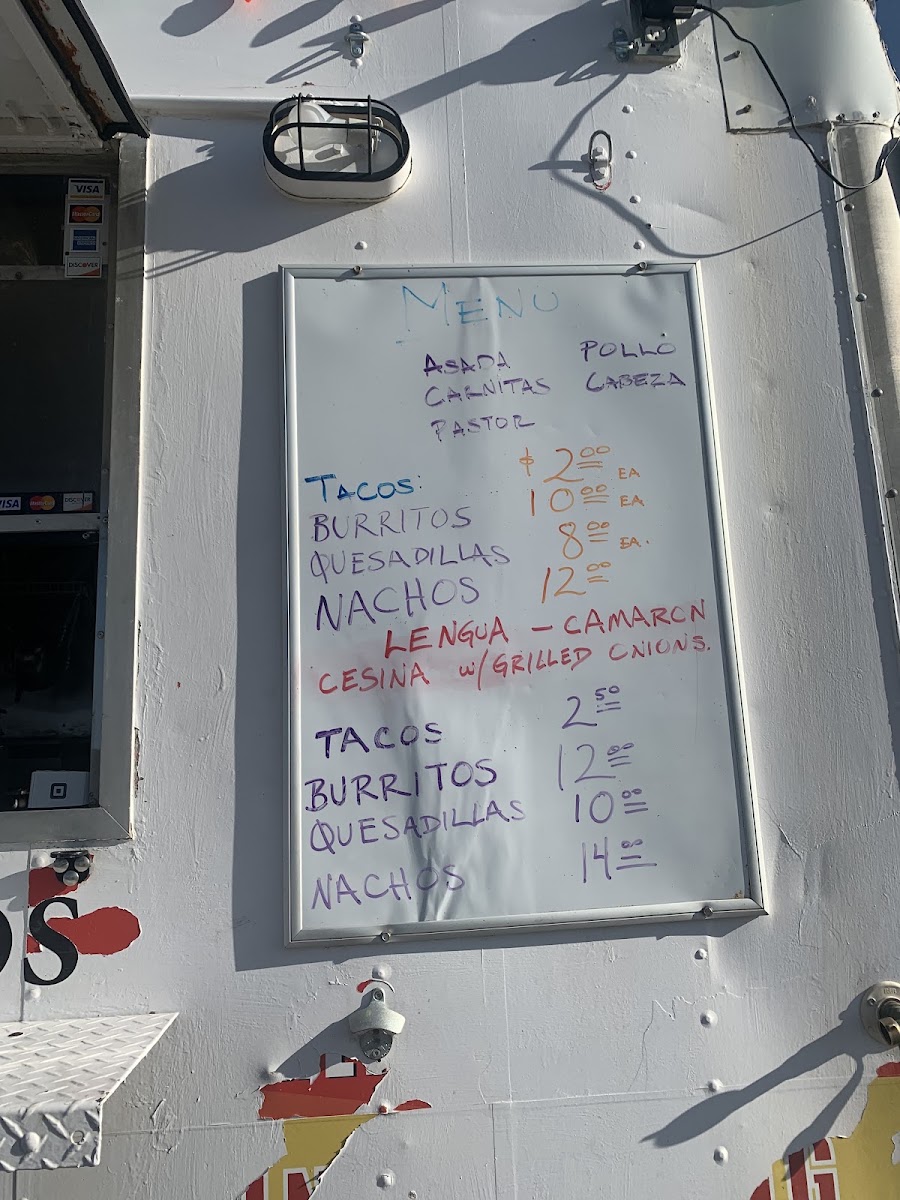 VISA
MasterCard
DISCOVER
VISA
MasterCard
DISCOVER
MENU
ASADA POLLO
CARNITAS CABEZA
PASTOR
TACOS: $2.00 EA
BURRITOS 10.00 EA
QUESADILLAS 8.00 EA.
NACHOS 12.00
LENGUA - CAMARON
CESINA W/GRILLED ONIONS.
TACOS 2.50
BURRITOS 12.00
QUESADILLAS 10.00
NACHOS 14.00
OS
G